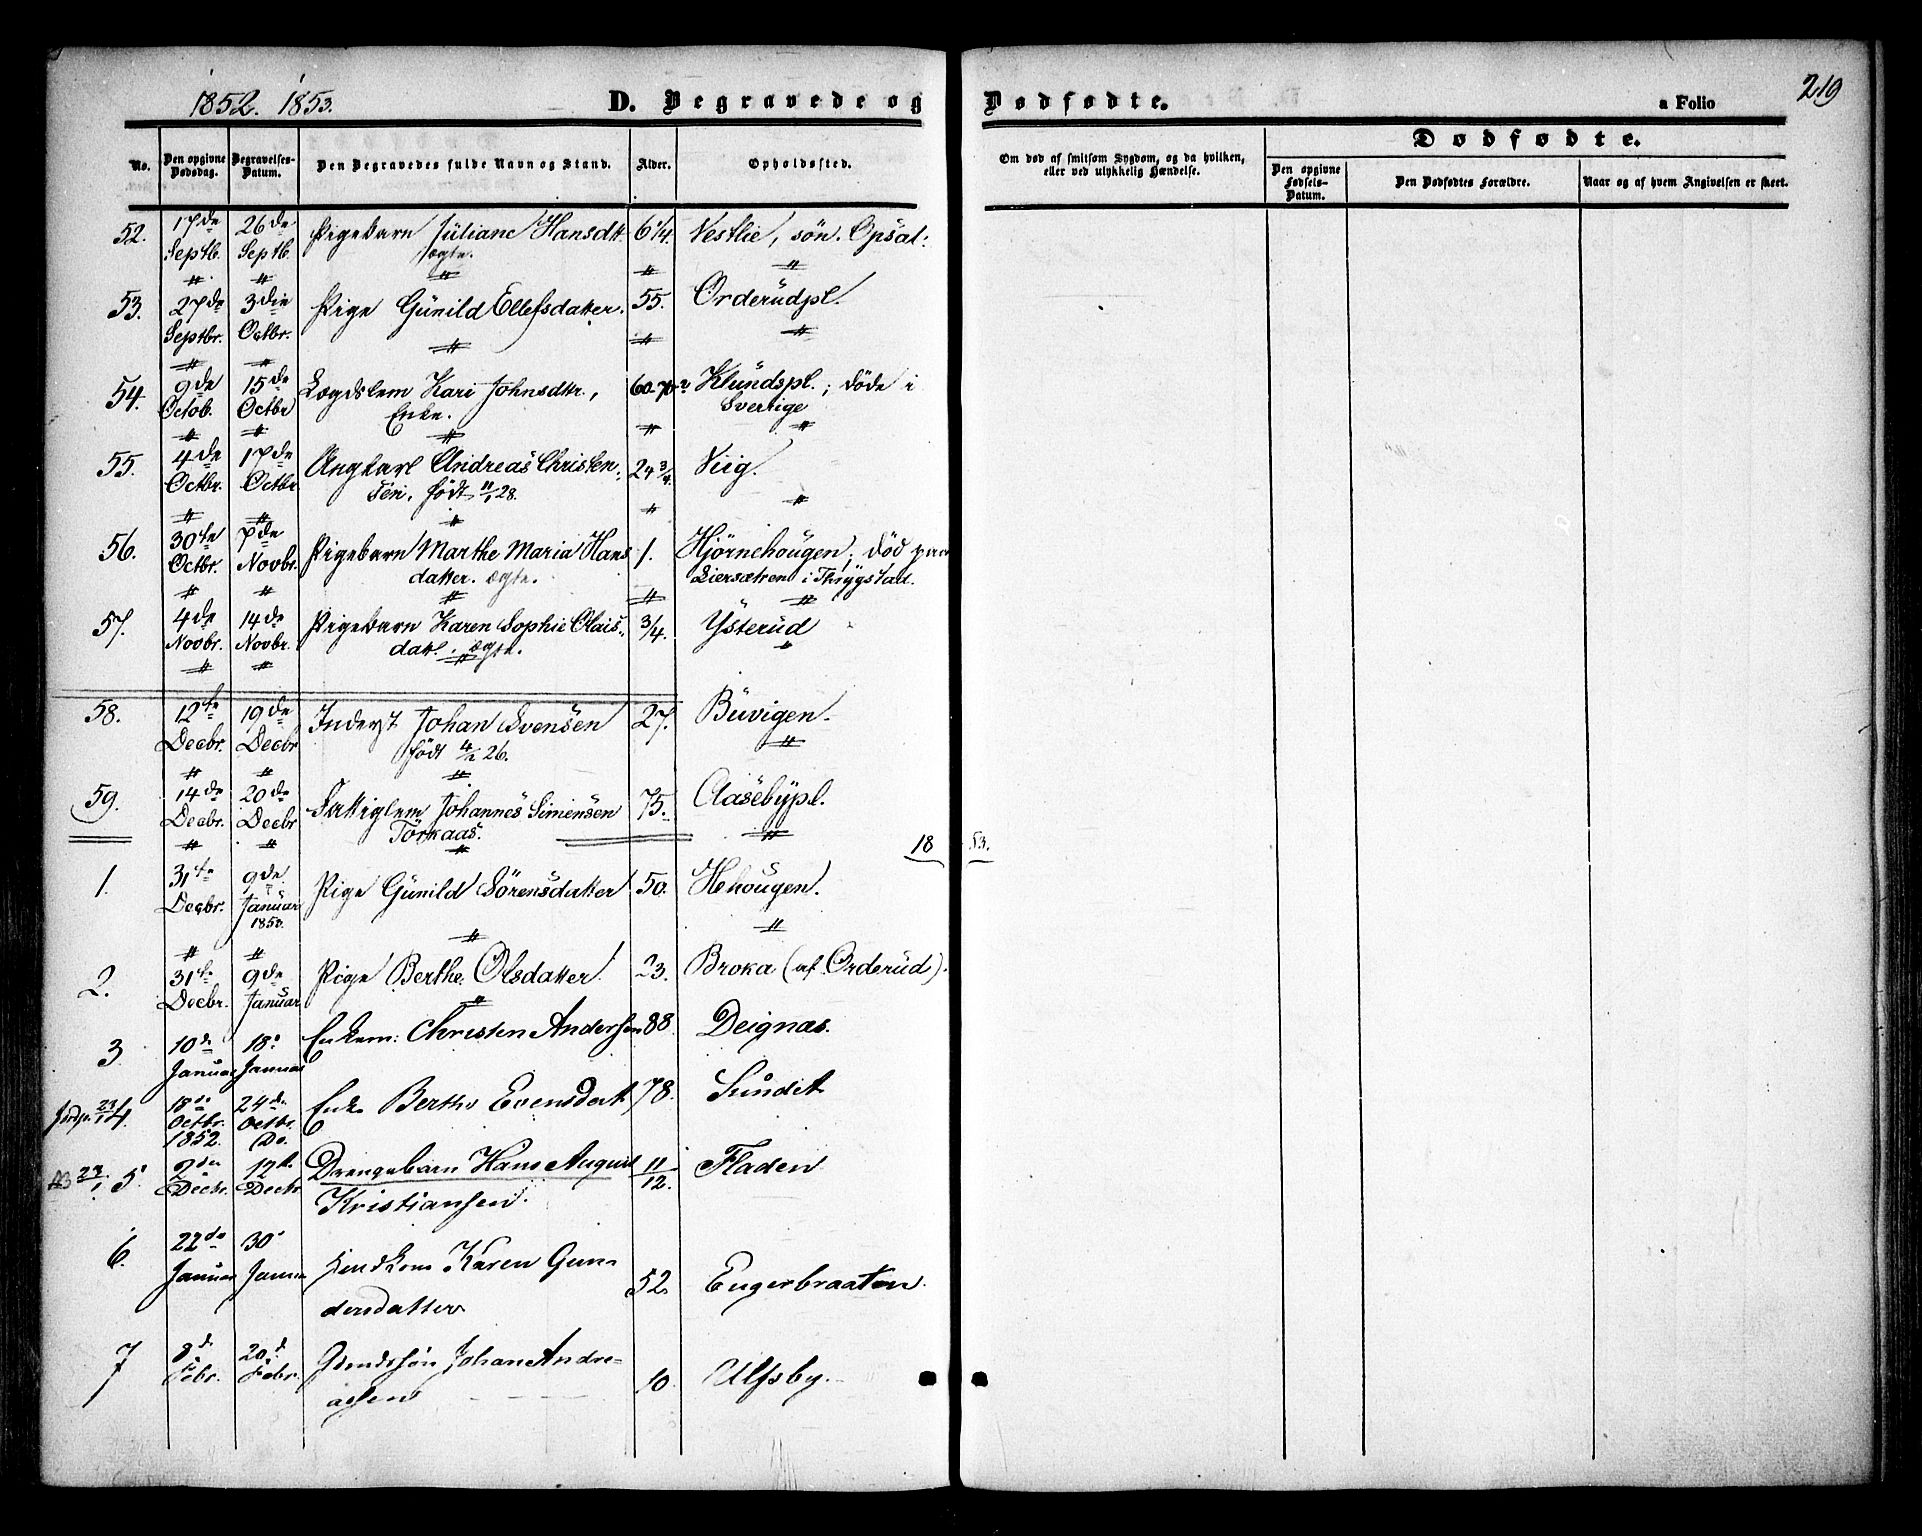 1852. 1853.
D. Begravede og Dødfødte.
a Folio 219
No.
Den opgivne Dødsdag.
Begravelses-Datum.
Den Begravedes fulde Navn og Stand.
Alder.
Opholdssted.
Om død af smitsom Sygdom, og da hvilken,
eller ved ulykkelig Hændelse.
Dødfødte.
Den opgivne Fødsels-Datum.
Den Dødfødtes Forældre.
Naar og af hvem Angivelsen er skeet.
52. 17de 26de Pigebarn Juliane Hansdtt. 6 1/4. Vestlie, søn. Opsal:
Septb. Septb. ægte.
53. 27de 3die Pige Gunild Ellefsdatter. 55. Orderudpl.
Septbr. Octbr.
54. 9de 15de Lægdslem Kari Johnsdtr., 60-70 Klundspl.; døde i
Octob. Octbr Enke. Sverrige
55. 4de 17de Ungkarl Andreas Christen- 24 3/4. Viig.
Octbr. Octbr. født 11/1 28.
56. 30te 7de Pigebarn Marthe Maria Hans 1. Hjørnehougen; død paa
Octbr. Novbr. datter. ægte. Liersætren i Thrygstad.
57. 4de 14de Pigebarn Karen Sophie Olais- 3/4. Ysterud
Novbr. Novbr. datt. ægte.
58. 12te 19de Inderst Johan Svensen 27. Buvigen.
Decbr. Decbr født 4/2 26.
59. 14de 20de Fattiglem Johannes Simensen 75. Claasebypl.
Decbr. Decbr Torkaas.
1853.
1. 31te 9de Pige Gunild Sørensdatter 50. Hehougen.
Decbr. Januar
1853.
2. 31te 9de Pige Berthe Olsdatter 23. Broka (af Orderud).
Decbr. Januar
3 10de 18. Enkem: Christen Andersen 88. Deignæs.
Januar Januar
Jordf. 23/1 4. 18de 24de Enke Berthe Evensdatt 78. Sundet
Octbr. Octbr.
1852. Do.
23/1 5. 2den 12te Drengebarn Hans August 11/12. Fladen
Decbr. Decbr. Kristiansen.
6. 22de 30 Karen Gun-
Januar Januar 52. Engerbraaten.
dersdatter
7 8de 20de Johan Andre- 10. Ulfsby.
Febr. Febr. assen